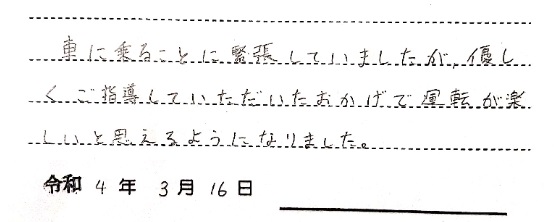 車に乗ることに緊張していましたが、優し
くご指導していただいたおかげで運転が楽
しいと思えるようになりました。
令和 4 年 3 月 16 日